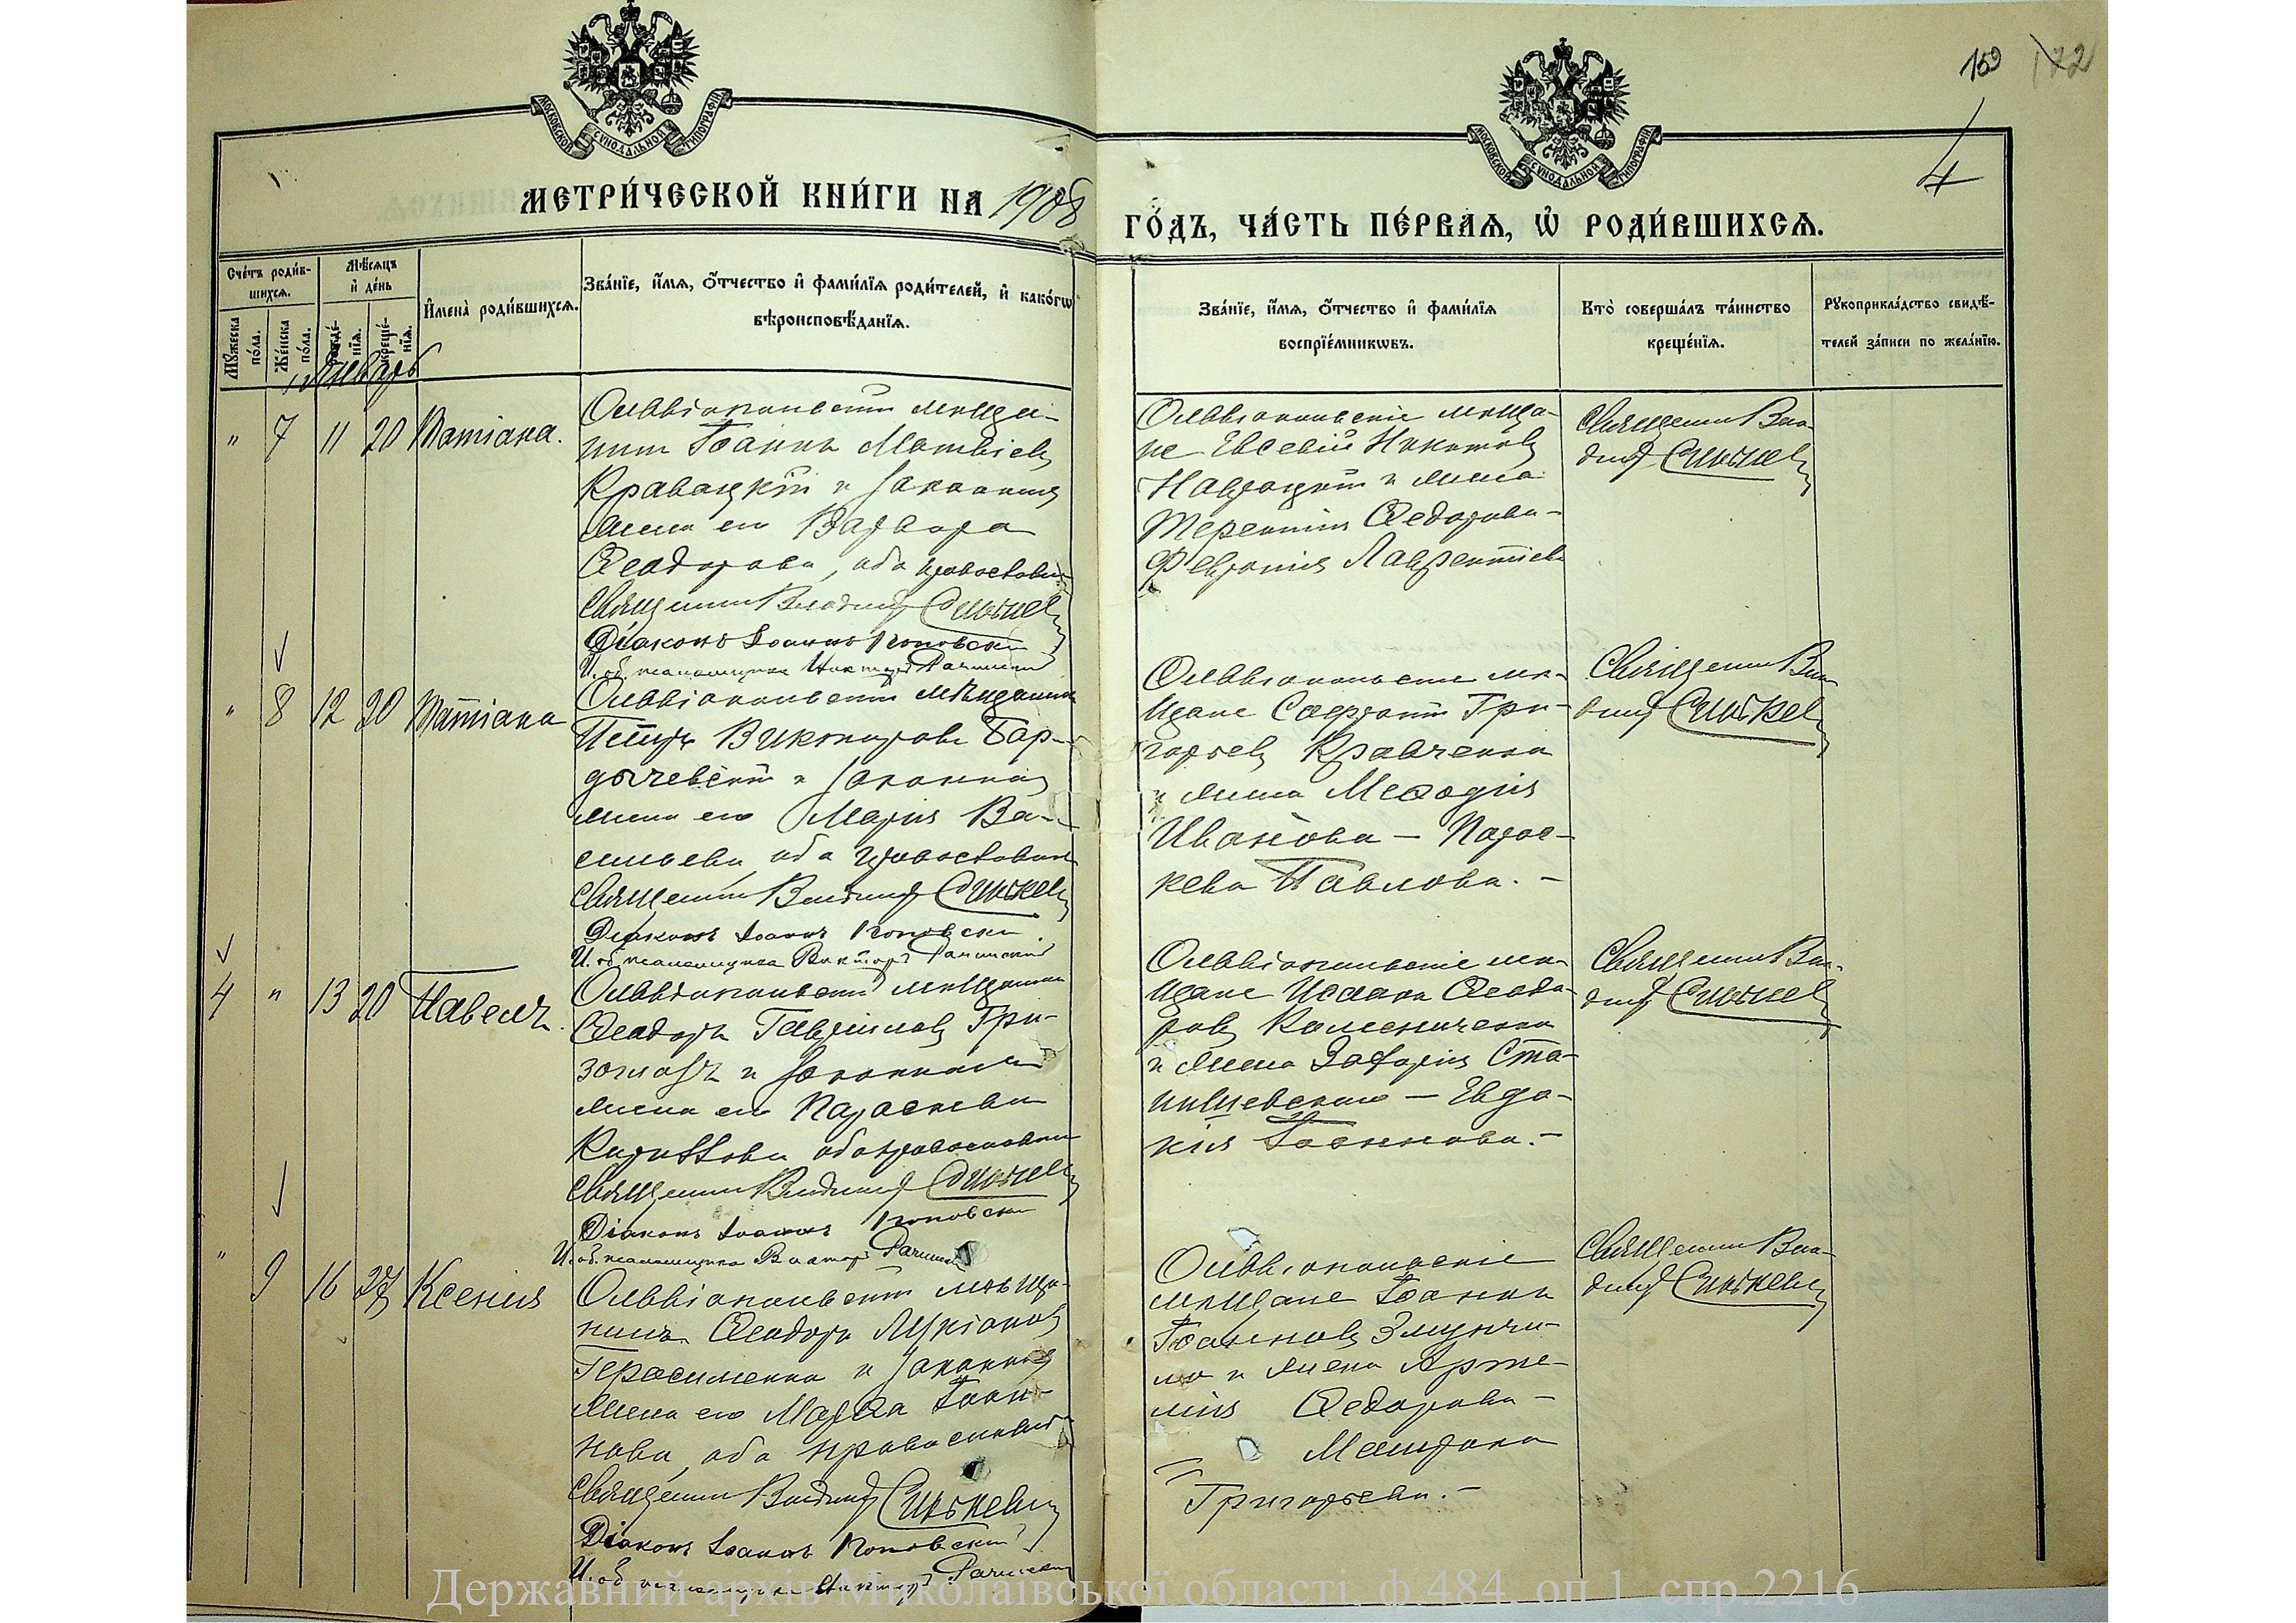 159 172
4
МОСКОВСКОЙ СУНОДАЛЬНОЙ ТИПОГРАФІИ
МОСКОВСКОЙ СУНОДАЛЬНОЙ ТИПОГРАФІИ
МЕТРИ́ЧЕСКОЙ КНИ́ГИ НА 1908
ГО́ДЪ, ЧА́СТЬ ПЕ́РВАЯ, Ѡ РОДИ́ВШИХСЯ.
Сче́тъ роди́в-
шихся.
Мѣ́сяцъ
и де́нь
Имена̀ роди́вшихся.
Зва́нїе, и́мя, о́тчество и фами́лїя роди́телей, и како́гѡ
вѣроисповѣ́данїя.
Мꙋ́жеска
по́ла.
Же́нска
по́ла.
рожде́-
нїя.
креще́-
нїя.
Январь
Зва́нїе, и́мя, о́тчество и фами́лїя
воспрїе́мникѡвъ.
Кто̀ соверша́лъ та́инство
креще́нїя.
Рꙋкоприкла́дство свидѣ́-
телей за́писи по жела́нїю.
" 7 11 20 Татіана.
Ольвіопольскій мѣща-
нинъ Іоаннъ Матвіевъ
Кравацкій и законная
жена его Варвара
Ѳеодорова, оба православн
Священникъ Владиміръ Синькевич
Діаконъ Іоаннъ Поповскій
И. об. псаломщика Викторъ Рачинскій
Ольвіопольскіе мѣща-
не Евсевій Никитовъ
Навроцкій и жена
Терентія Ѳедорова-
Февронія Лаврентіева
Священникъ Вла-
диміръ Синькевич
" 8 12 20 Татіана
Ольвіопольскій мѣщанинъ
Петръ Викторовъ Бар-
дычевскій и законная
жена его Марія Ва-
сильева, оба православн
Священникъ Владиміръ Синькевич
Діаконъ Іоаннъ Поповскій
И. об. псаломщика Викторъ Рачинскій
Ольвіопольскіе мѣ-
щане Софроній Гри-
горьевъ Кравченко
и жена Меѳодія
Иванова — Парас-
кева Павлова. —
Священникъ Вла-
диміръ Синькевич
4 " 13 20 Павелъ.
Ольвіопольскій мѣщанинъ
Ѳеодоръ Гавріиловъ Гри-
и законная
жена его Параскева
Кириллова оба православные
Священникъ Владиміръ Синькевич
Діаконъ Іоаннъ Поповскій
И. об. псаломщика Викторъ Рачинскій
Ольвіопольскіе мѣ-
щане Исаакъ Ѳеодо-
ровъ Камениченко
и жена Захарія Ста-
нишевскаго — Евдо-
кія Іоаннова. —
Священникъ Вла-
диміръ Синькевич
" 9 16 27 Ксенія
Ольвіопольскій мѣща-
нинъ Ѳеодоръ Лукіановъ
Герасименко и законная
жена его Марѳа Іоан-
нова, оба православн
Священникъ Владиміръ Синькевич
Діаконъ Іоаннъ Поповскій
И. об. псаломщика Викторъ Рачинскій
Ольвіопольскіе
мѣщане Іоаннъ
Іоанновъ
и жена Арте-
мія Ѳедорова —
Матрона
Григорьева. —
Священникъ Вла-
диміръ Синькевич
Державний архів Миколаївської області, ф.484, оп 1, спр.2216